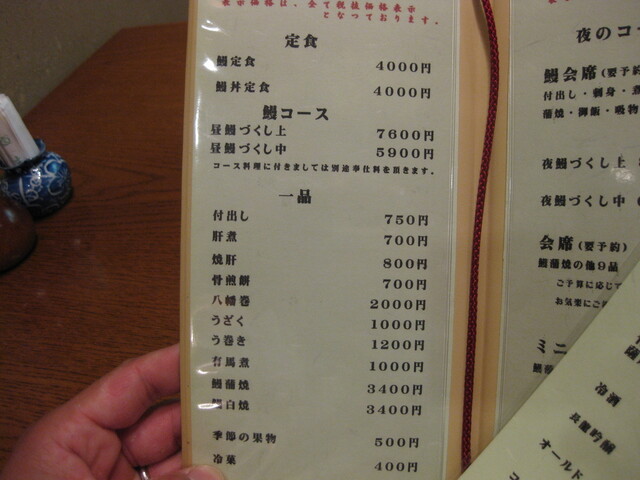 表示価格は、全て税抜価格表示
となっております。
定食
鰻定食 4000円
鰻丼定食 4000円
鰻コース
昼鰻づくし上 7600円
昼鰻づくし中 5900円
コース料理に付きましては別途奉仕料を頂きます。
一品
付出し 750円
肝煮 700円
焼肝 800円
骨煎餅 700円
八幡巻 2000円
うざく 1000円
う巻き 1200円
有馬煮 1000円
鰻蒲焼 3400円
鰻白焼 3400円
季節の果物 500円
冷菓 400円
夜のコー
鰻会席(要予約
付出し・刺身・煮
蒲焼・御飯・吸物
夜鰻づくし上
夜鰻づくし中
会席(要予約)
鰻蒲焼の他9品
ご予算に応じて
お気楽にご
ミニ
冷酒
長龍吟醸
オールド